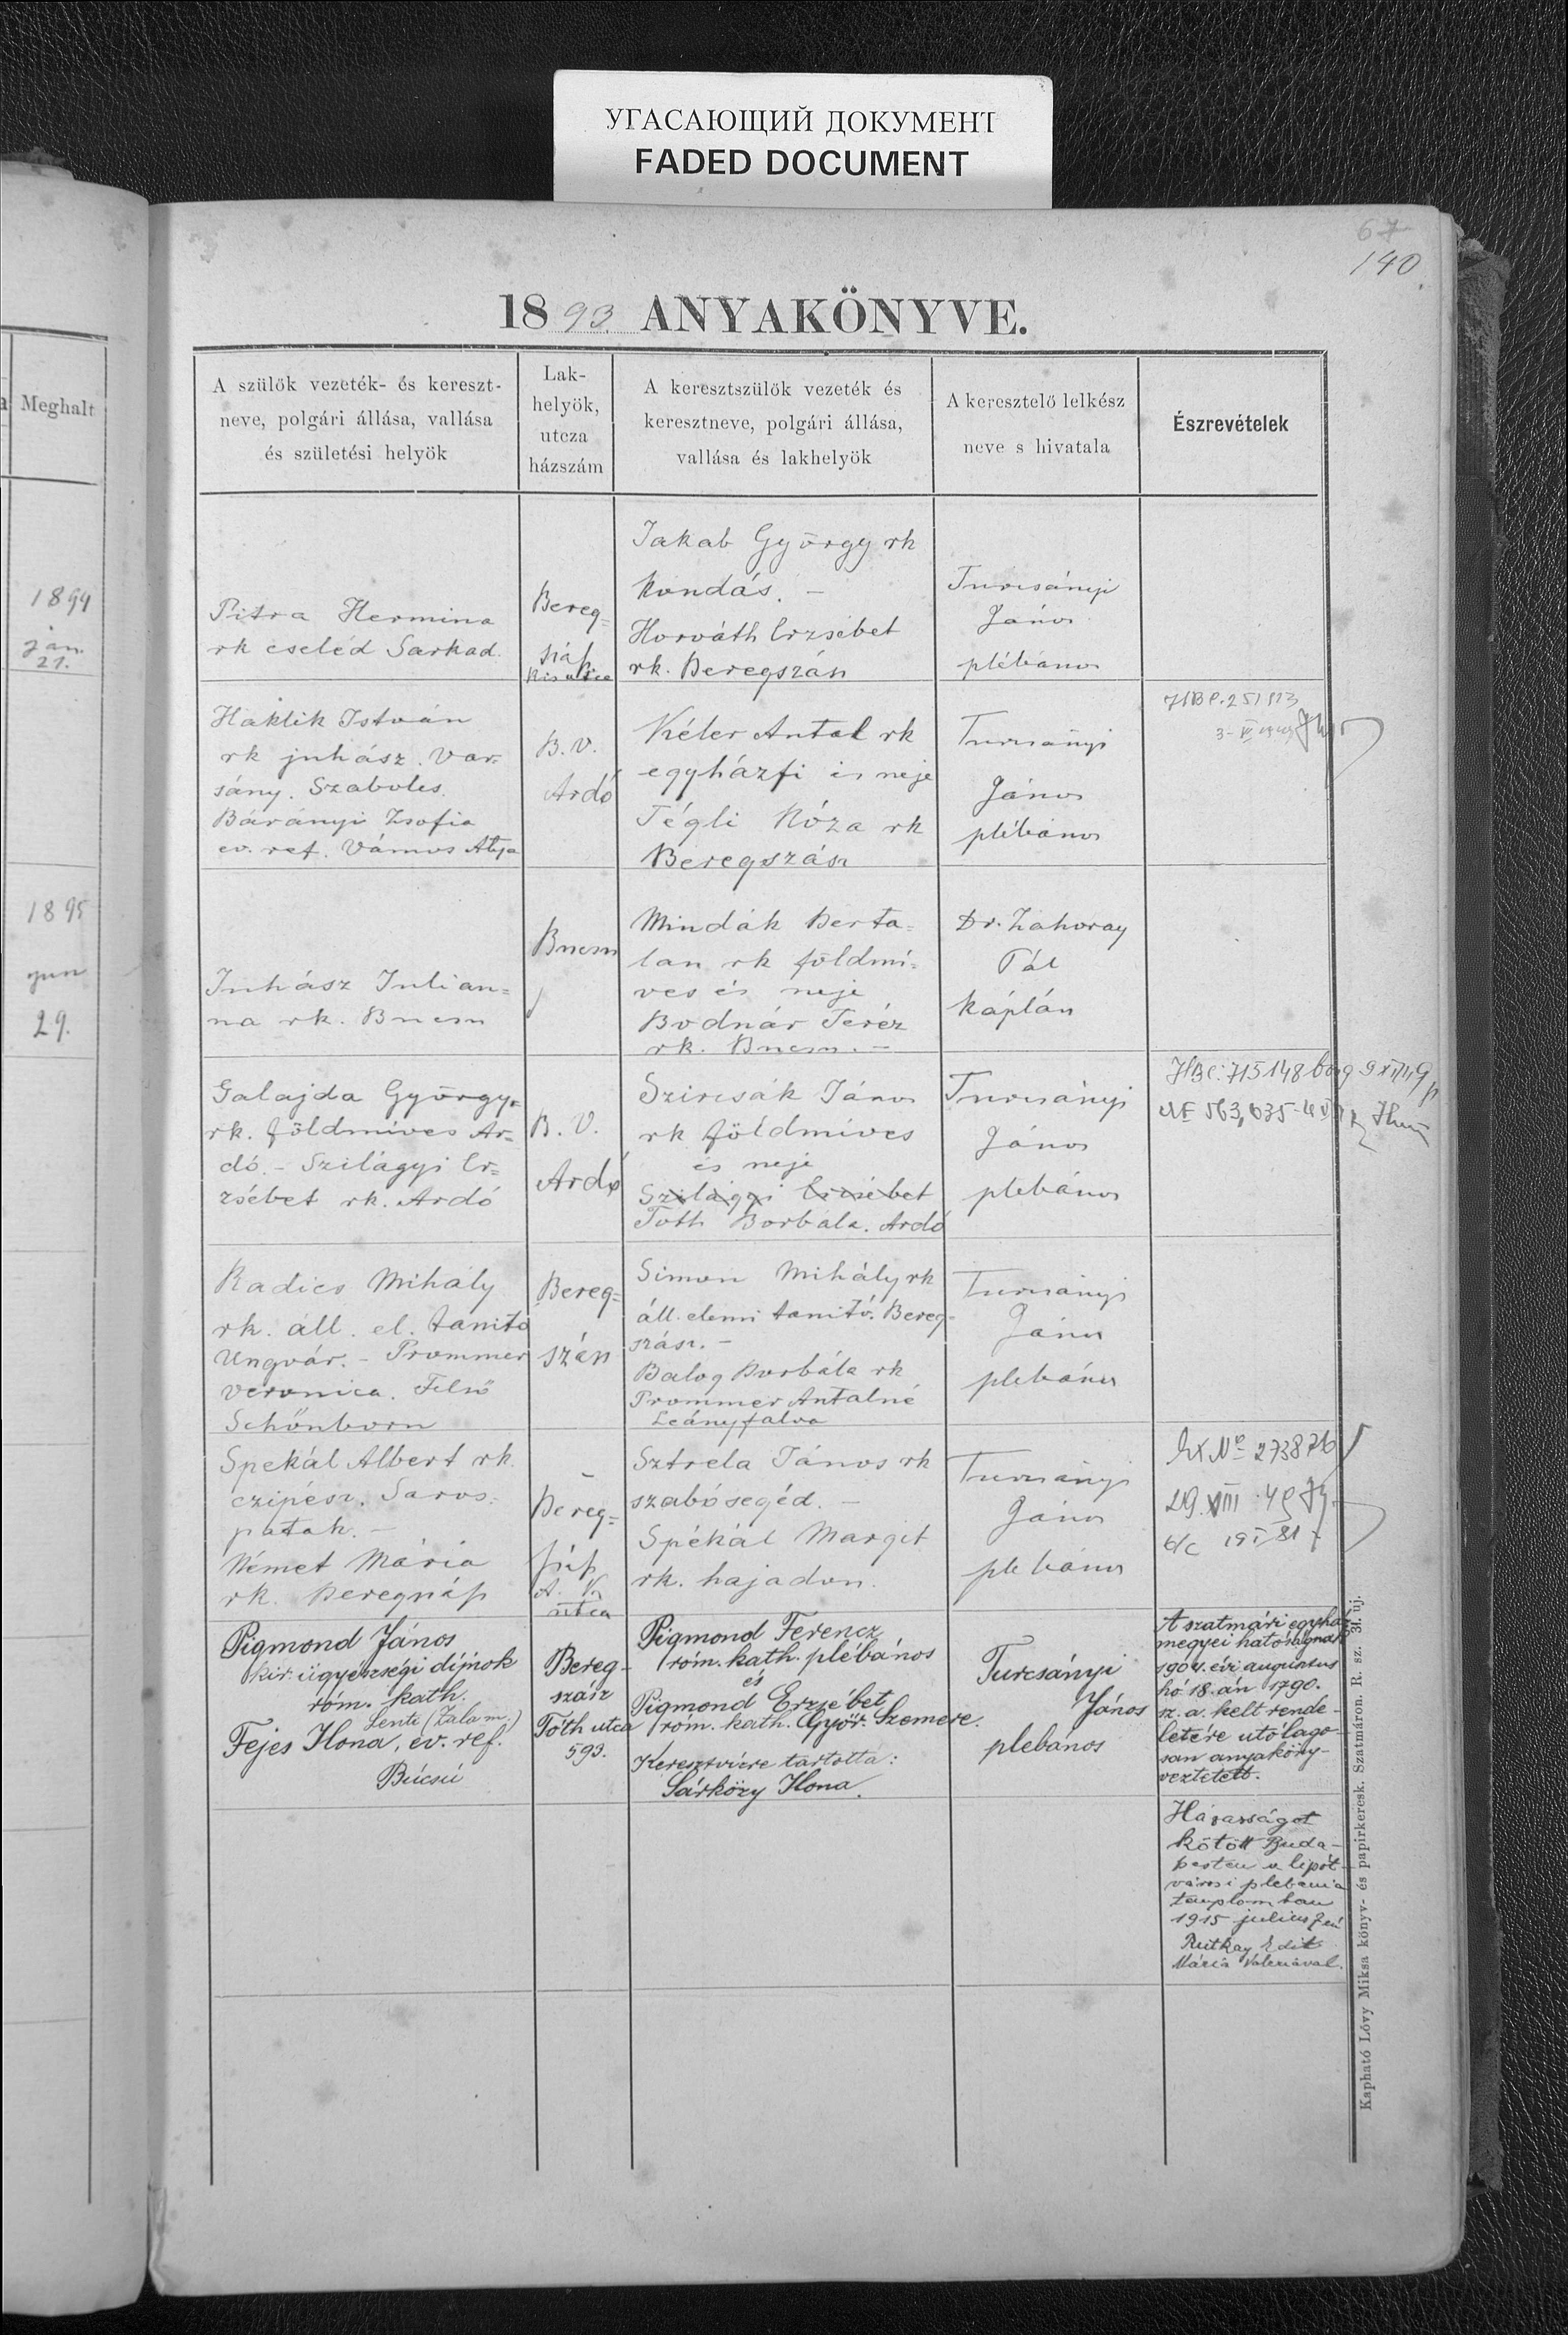 УГАСАЮЩИЙ ДОКУМЕНТ
FADED DOCUMENT
67
140
1893 ANYAKÖNYVE.
Meghalt
1894
jan.
21.
1895
jun
29.
A szülők vezeték- és kereszt-
neve, polgári állása, vallása
és születési helyök
Lak-
helyök,
utcza
házszám
A keresztszülők vezeték és
keresztneve, polgári állása,
vallása és lakhelyök
A keresztelő lelkész
neve s hivatala
Észrevételek
Pitra Hermina
rk cseléd Sarkad.
Bereg=
szász
Kis utca
Jakab György rk
Kondás. -
Horváth Erzsébet
rk. Beregszász
Turcsányi
János
plébános
Haklik István
rk juhász. Var-
sány. Szabolcs.
Bárányi Zsofia
ev. ref. Vámos Atya
B. V.
Ardó
Kéler Antal rk
egyházfi és neje
Tégli Róza rk
Beregszász
Turcsányi
János
plébános
Juhász Julian=
na rk. Bnem
Bnem
Mindák Berta=
lan rk földmi=
ves és neje
Bodnár Teréz
rk. Bnem. -
Dr. Zahoray
Pál
káplán
Galajda György
rk. földmíves Ar=
dó. - Szilágyi Er=
zsébet rk. Ardó
B. V.
Ardó
Szircsák János
rk földmíves
és neje
Szilágyi Erzsébet
Tóth Borbála. Ardó
Turcsányi
János
plebános
Radics Mihály
rk. áll. el. tanito
Ungvár. - Prommer
Veronica. Felső
Schönborn
Bereg=
szász
Simon Mihály rk
áll. elemi tanító. Bereg-
szász. -
Balog Borbála rk
Prommer Antalné
Leányfalva
Turcsányi
János
plebános
Spekál Albert rk.
czipész. Saros-
patak. -
Német Mária
rk. Beregszász
Bereg=
szász
A. K.
utca
Sztrela János rk
szabósegéd. -
Spékál Margit
rk. hajadon.
Turcsányi
János
plebános
Pigmond János
kir. ügyészségi dijnok
róm. kath.
Lenti (Zala m.)
Fejes Ilona, ev. ref.
Búcsú
Bereg-
szász
Tóth utca
593.
Pigmond Ferencz
róm. kath. plébános
és
Pigmond Erzsébet
róm. kath. Győr. Szemere.
Keresztvízre tartotta:
Sárközy Ilona.
Turcsányi
János
plebános
A szatmári egyház
megyei hatóságnak
1904. évi augusztus
hó 18-án 1790.
sz. a. kelt rende-
letére utólago-
san anyaköny-
veztetett.
Házasságot
kötött Buda-
pesten a lipót-
városi plebánia
templomban
1915 julius
Ruttkay Edit
Mária Valeriával.
Kapható Lővy Miksa könyv- és papirkeresk. Szatmáron. R. sz. 3l. uj.